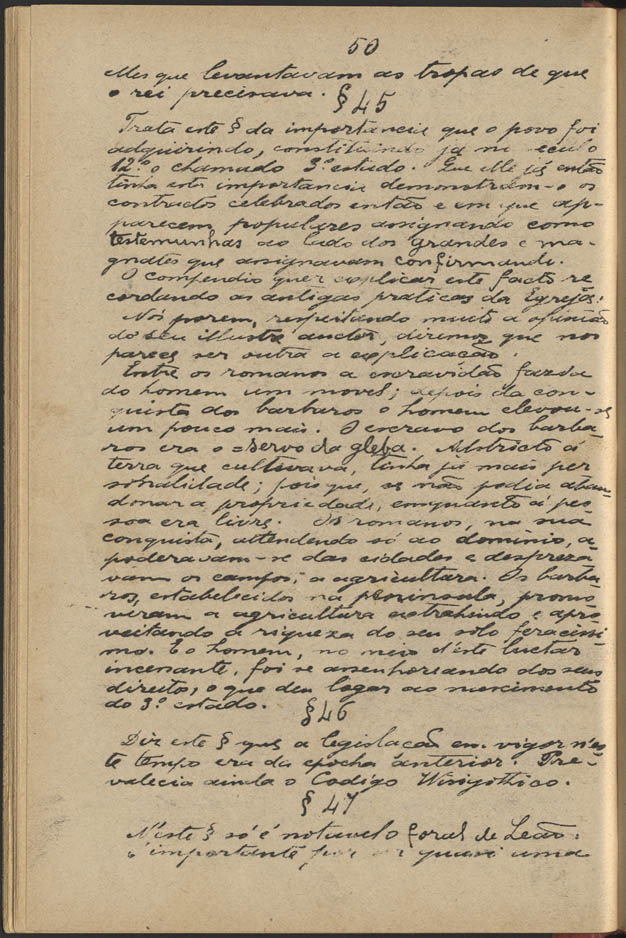 50
elles que levantavam as tropas de que
o rei precisava.
§ 45
Trata este § da importancia que o povo foi
adquirindo, constituindo já no seculo
12.º o chamado 3.º estado. Que elle já então
tinha esta importancia demonstram-o os
contractos celebrados então e em que ap-
parecem populares assignando como
testemunhas ao lado dos grandes e ma-
gnates que assignavam confirmando.
O compendio quer explicar este facto re
cordando as antigas praticas da Egreja.
Nós porem, respeitando muito a opinião
do seu illustre auctor, diremos que nos
parece ser outra a explicação.
Entre os romanos a escravidão fazia
do homem um movel; depois da con-
quista dos barbaros o homem elevou-se
um pouco mais. O escravo dos barba-
ros era o =servo da gleba. Adstricto á
terra que cultivava, tinha já mais per
sonalidade; pois que, se não podia aban-
donar a propriedade, emquanto á pes
soa era livre. Os romanos, na sua
conquista, attendendo só ao dominio, a-
poderavam-se das cidades e despreza-
vam os campos, a agricultura. Os barba-
ros, estabelecidos na peninsula, promo
viram a agricultura extrahindo e apro-
veitando a riqueza do seu solo feracissi
mo. E o homem, no meio d'este luctar
incessante, foi-se assenhoreando dos seus
direitos, o que deu logar ao nascimento
do 3.º estado.
§ 46
Diz este § que a legislação em vigor n'es
te tempo era da epocha anterior. Pre-
valecia ainda o Codigo Wisigothico.
§ 47
N'este § só é notavel o foral de Leão:
é importante por ser quasi uma